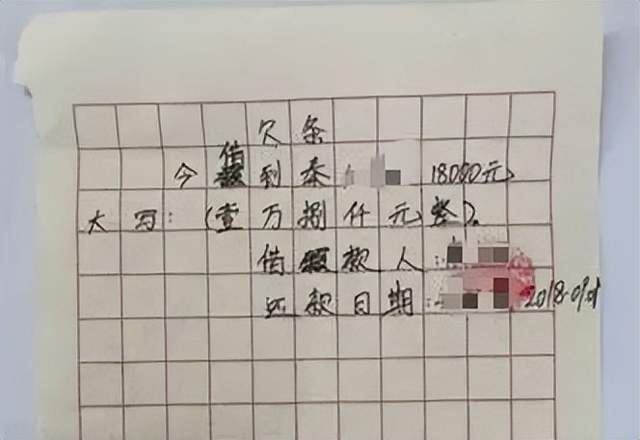 欠条
今借到秦 18000元
大写:(壹万捌仟元整)。
借款人:
还款日期: 2018.09.01